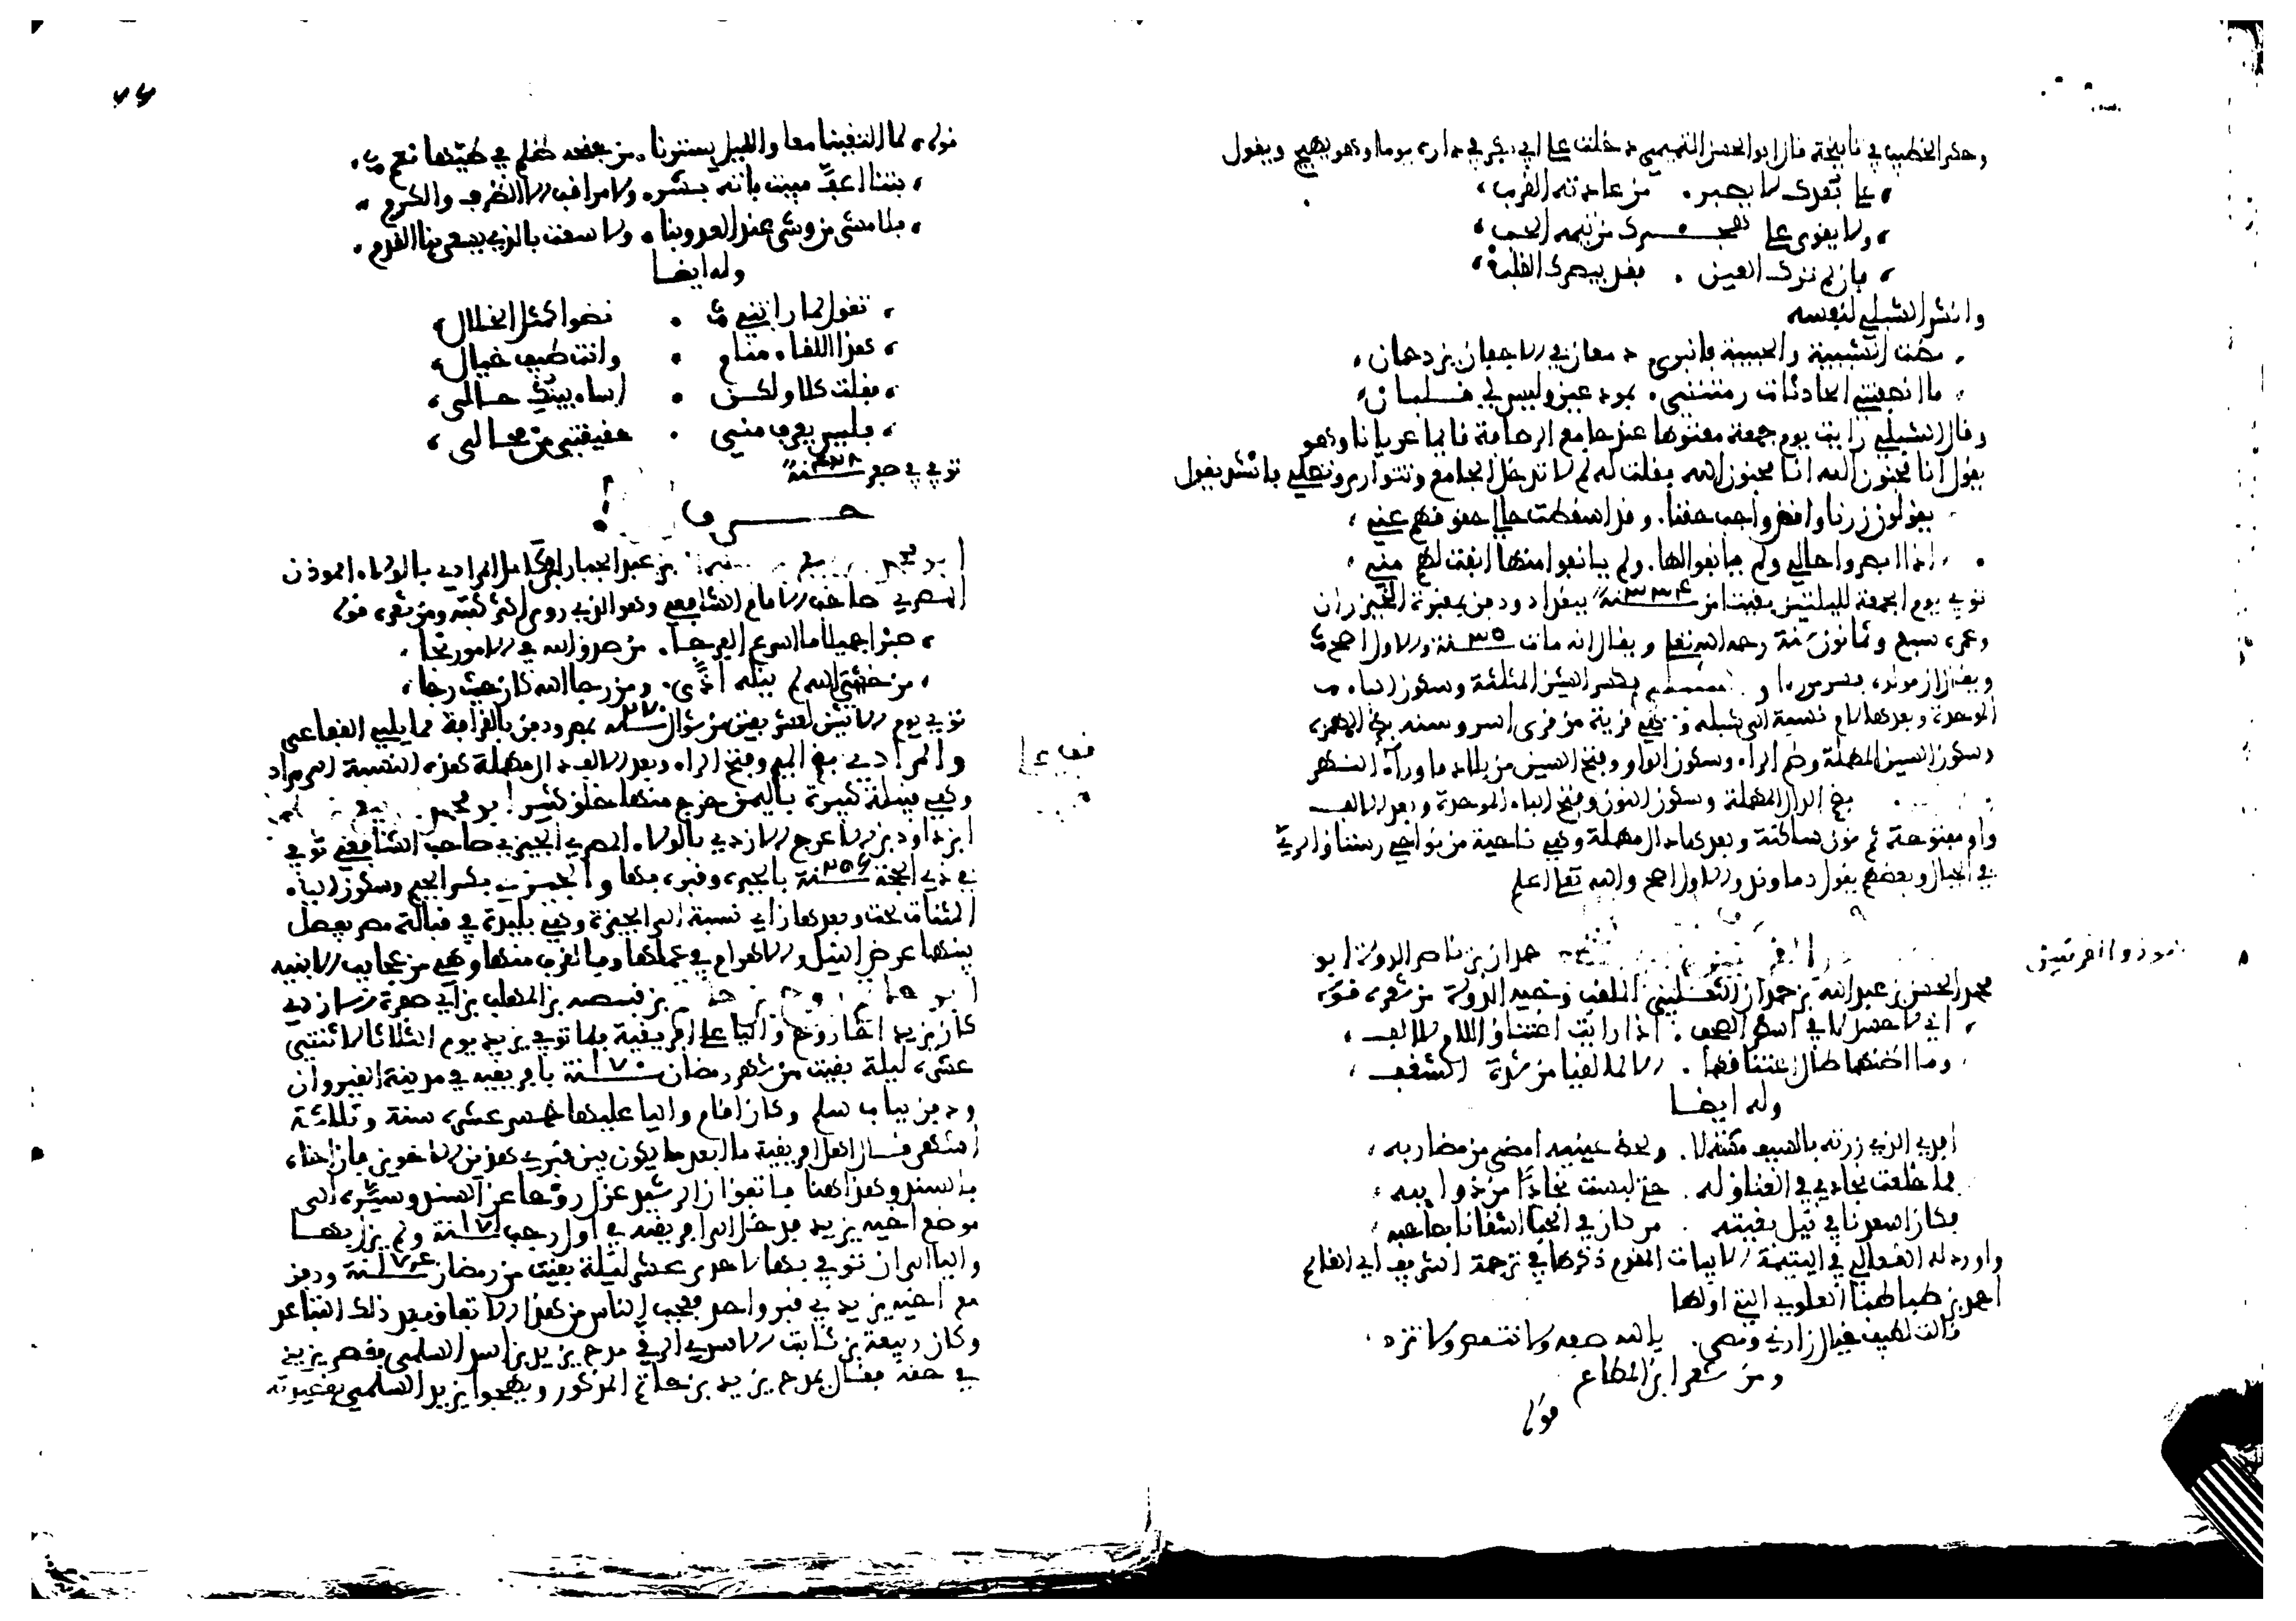 وحكى الخطيب في تاريخه قال ابو الحسن التميمي دخلت على ابي بكر في داره يوما وهو يهيج ويقول
على بعدك لا يصبر . من عادته القرب
ولا يقوى على هجرك من تيمه الحب
فإن لم ترك العين . فقد يبصرك القلب
وانشد الشبلي لنفسه
مضت الشبيبة والحبيبة فانبرى . دمعان في الاجفان يزدحمان
ما انصفتني الحادثات رمتني . بمودعين وليس لي قلبان
وقال الشبلي رايت يوم جمعة معتوها عند جامع الرصافة قائما عريانا وهو
يقول انا مجنون الله انا مجنون الله فقلت له لم لا تدخل الجامع وتتوارى وتصلي فانشد يقول
يقولون زرنا واقض واجب حقنا . وقد اسقطت حالي حقوقهم عني
اذا ابصروا حالي ولم يانفوا لها . ولم يانفوا منها انفت لهم مني
توفي يوم الجمعة لليلتين بقيتا من سنة ٣٣٤ ببغداد ودفن بمقبرة الخيزران
وعمره سبع وثمانون سنة رحمه الله تعلى ويقال انه مات سنة ٣٥ والاول اصح
ويقال ان مولده بسر من را و بكسر الشين المثلثة وسكون الباء
الموحدة وبعدها لام نسبة الى شبلة وهي قرية من قرى اسروسنه بضم الهمزة
وسكون السين المهملة وضم الراء وسكون الواو وفتح السين من بلاد ما وراء النهر
بضم الدال المهملة وسكون النون وفتح الباء الموحدة وبعد الالف
واو مفتوحة ثم نون ساكنة وبعدها دال مهملة وهي ناحية من نواحي رستاق الري
في الجبال وبعضهم يقول دماوند والاول اصح والله تعلى اعلم
حمدان بن ناصر الدولة ابو
محمد الحسن بن عبد الله بن حمدان التغلبي الملقب وجيه الدولة من شعره قوله
اني لاحسد لا في اسطر الصحف . اذا رايت اعتناق اللام للالف
وما اظنهما طال اعتناقهما . الا لما لقيا من شدة الشغف
وله ايضا
افدي الذي زرته بالسيف مشتملا . ولحظ عينيه امضى من مضاربه
فما خلعت نجادي في العناق له . حتى لبست نجادا من ذوائبه
فكان اسعدنا في نيل بغيته . من كان في الحب اشقانا بصاحبه
واورد له الثعالبي في اليتيمة الابيات المقدم ذكرها في ترجمة الشريف ابي القاسم
احمد بن طباطبا العلوي التي اولها
قالت لطيف خيال زارني ومضى . بالله صفه ولا تنقص ولا تزد
ومن شعر ابن المطاع
قوله
ذو القرنين
٧٤
قوله لما التقينا معا والليل يسترنا . من جنحه ظلم في طيها نعم
بتنا اعف مبيت باته بشر . ولا مراقب الا الظرف والكرم
فلا مشى من وشى عند العدو بنا . ولا سعت بالذي يسعى بنا القدم
وله ايضا
تقول لما راتني . نضوا كمثل الخلال
هذا اللقاء منام . وانت طيف خيال
فقلت كلا ولكن . اساء بينك حالي
فليس يعرف مني . حقيقتي من محالي
توفي في صفر سنة ٤٢٨
حرف
ابو محمد بن عبد الجبار بن كامل المرادي بالولاء الموذن
المصري صاحب الامام الشافعي وهو الذي روى اكثر كتبه ومن شعره قوله
صبرا جميلا ما اسرع الفرجا . من صدق الله في الامور نجا
من خشي الله لم ينله اذى . ومن رجا الله كان حيث رجا
توفي يوم الاثنين لعشر بقين من شوال سنة ٢٧٠ بمصر ودفن بالقرافة مما يلي الفقاعي
والمرادي بضم الميم وفتح الراء وبعد الالف دال مهملة هذه النسبة الى مراد
وهي قبيلة كبيرة باليمن خرج منها خلق كثير ابو محمد
ابن داود بن الاعرج الازدي بالولاء المصري الجيزي صاحب الشافعي توفي
في ذي الحجة سنة ٢٥٦ بالجيزة وقبره بها والجيزي بكسر الجيم وسكون الياء
المثناة تحت وبعدها زاي نسبة الى الجيزة وهي بليدة في قبالة مصر يفصل
بينهما عرض النيل والاهرام في عملها وبالقرب منها وهي من عجايب الابنية
ابو حاتم روح بن حاتم بن قبيصه بن المهلب بن ابي صفرة الازدي
كان يزيد اخا روح واليا على افريقية فلما توفي يزيد يوم الثلاثاء لاثنتي
عشرة ليلة بقيت من شهر رمضان سنة ١٧٠ بافريقيه في مدينة القيروان
ودفن بباب سلم وكان اقام واليا عليها خمس عشرة سنة وثلاثة
اشهر قال اهل افريقية ما ابعد ما يكون بين قبري هذين الاخوين فان اخاه
بالسند وهذا هنا فاتفق ان الرشيد عزل روحا عن السند وسيره الى
موضع اخيه يزيد فدخل الى افريقيه في اول رجب سنة ١٧١ ولم يزل بها
واليا الى ان توفي بها لاحدى عشر ليلة بقيت من رمضان سنة ١٧٤ ودفن
مع اخيه يزيد في قبر واحد فعجب الناس من هذا الاتفاق بعد ذلك التباعد
وكان ربيعة بن ثابت الاسدي الرقي مدح يزيد بن اسيد السلمي فقصر يزيد
في حقه فقال يمدح يزيد بن حاتم المذكور ويهجوا يزيد السلمي بقصيدته